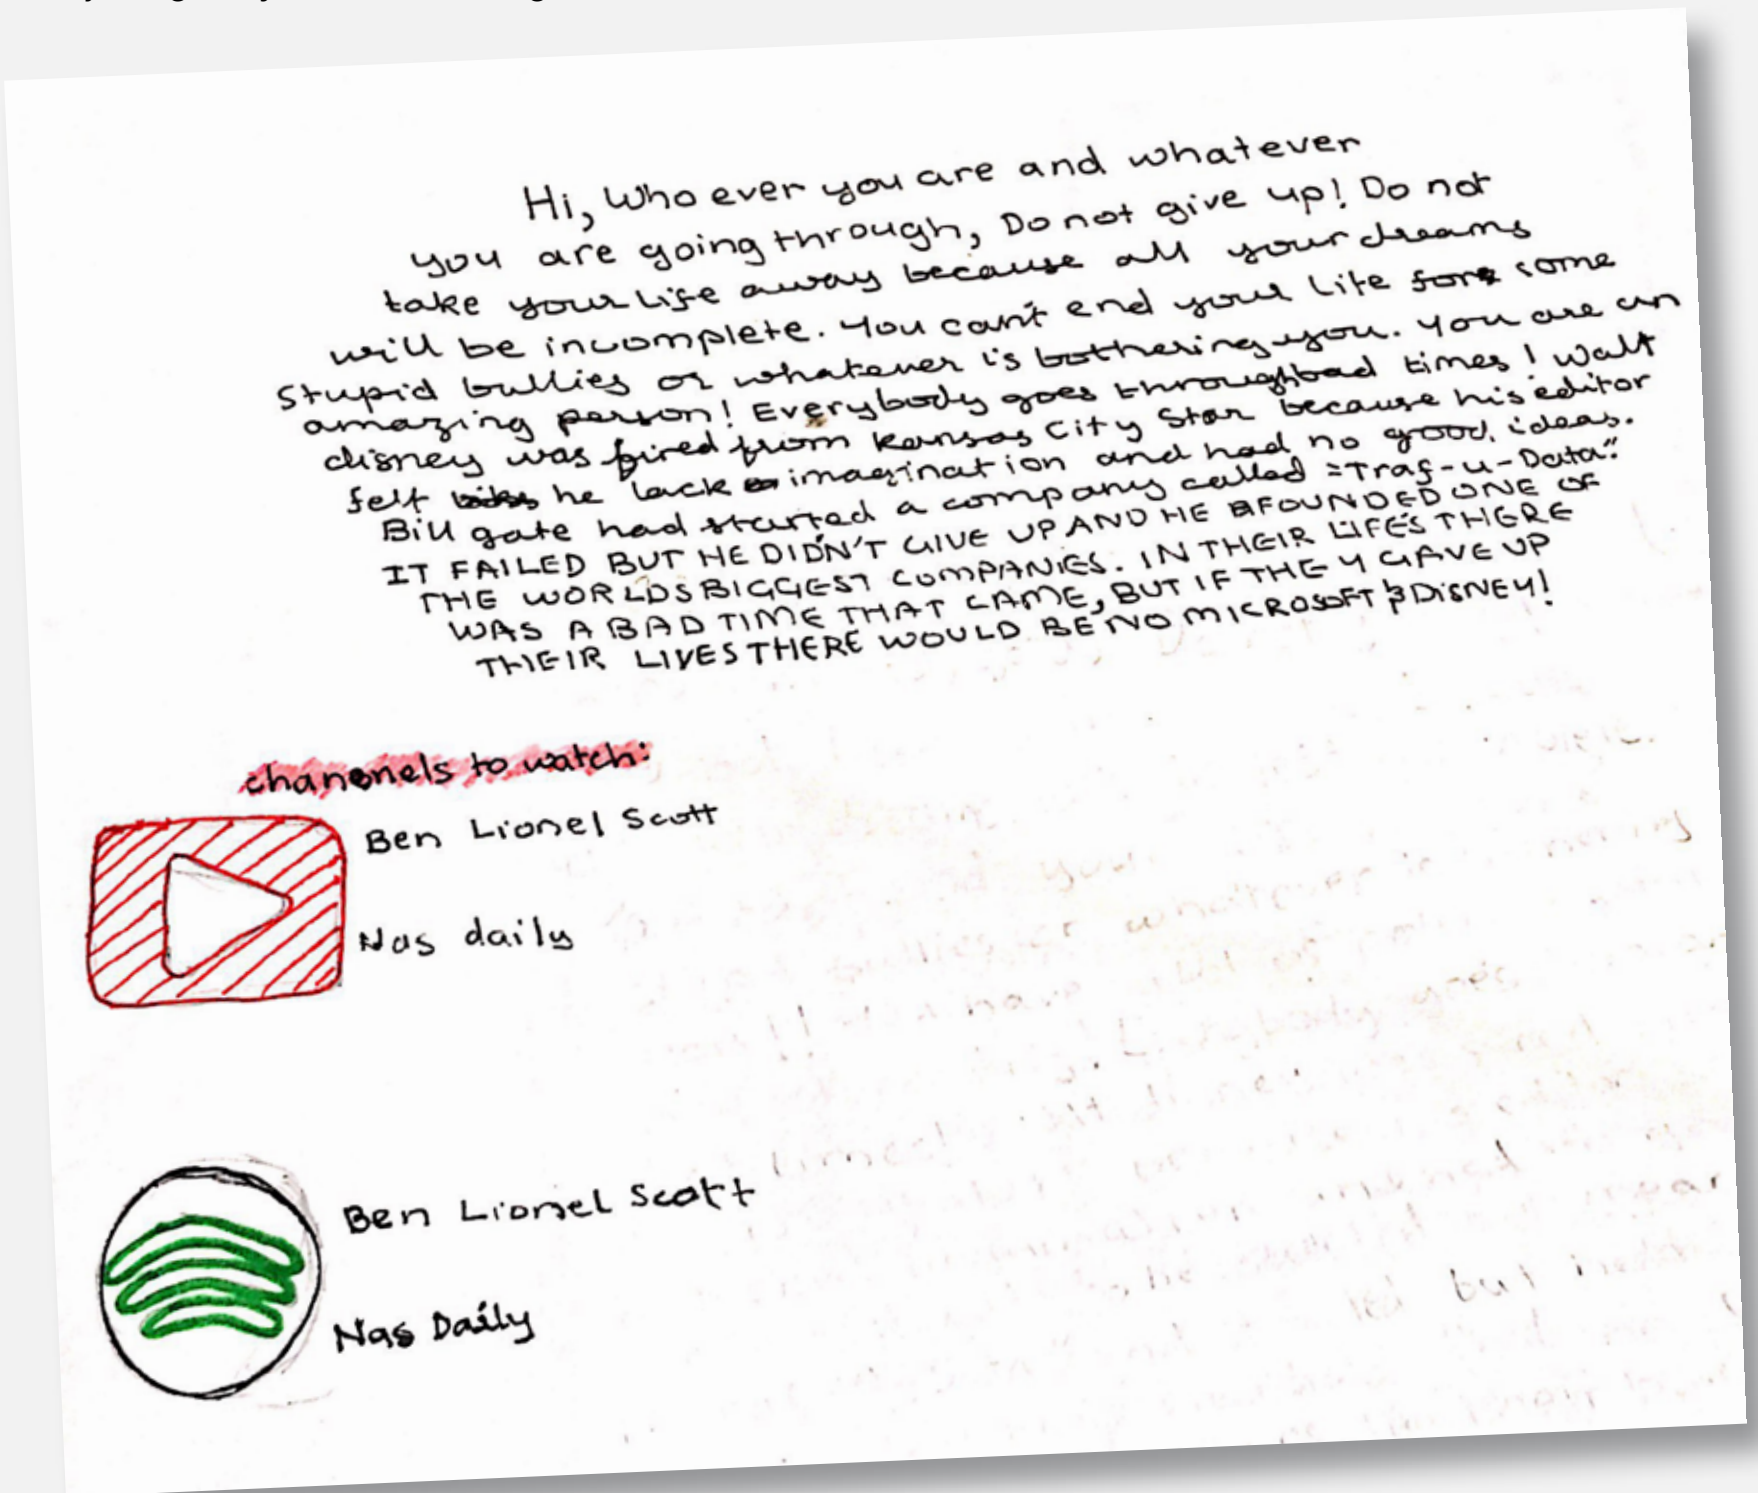 Hi, Who ever you are and whatever
you are going through, Do not give up! Do not
take your life away because all your dreams
will be incomplete. You can't end your life for some
stupid bullies or whatever is bothering you. You are an
amazing person! Everybody goes through bad times! Walt
disney was fired from Kansas City Star because his editor
felt he lack imagination and had no good ideas.
Bill gate had started a company called "Traf-u-Data".
IT FAILED BUT HE DIDN'T GIVE UP AND HE FOUNDED ONE OF
THE WORLDS BIGGEST COMPANIES. IN THEIR LIFE'S THERE
WAS A BAD TIME THAT CAME, BUT IF THEY GAVE UP
THEIR LIVES THERE WOULD BE NO MICROSOFT & DISNEY!
channels to watch:
Ben Lionel Scott
Nas daily
Ben Lionel Scott
Nas Daily